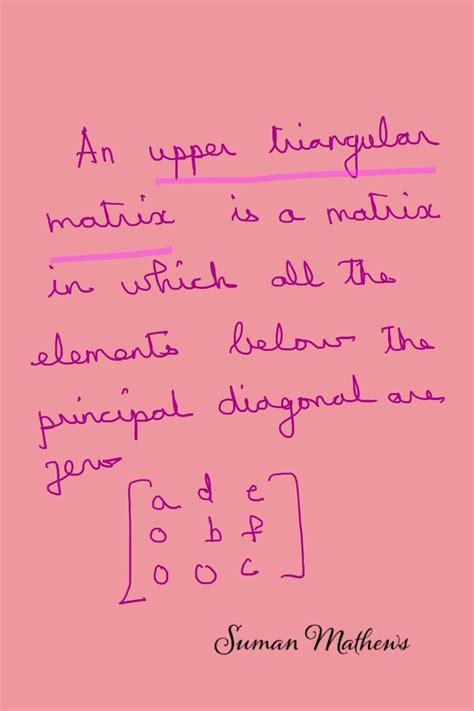 An upper triangular
matrix is a matrix
in which all the
elements below the
principal diagonal are
zero
a d e
0 b f
0 0 c
Suman Mathews